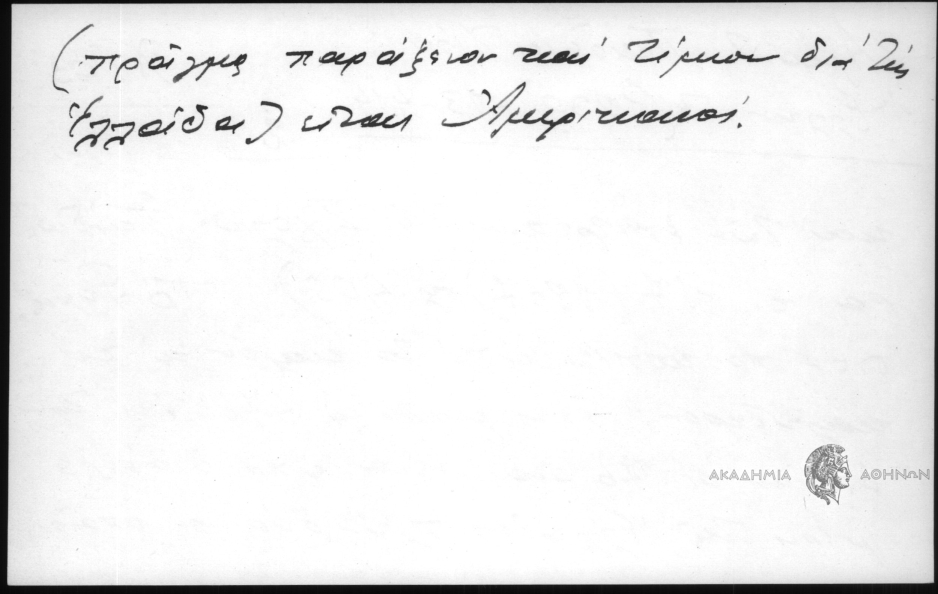 (πρᾶγμα παράξενον καί τίμιον διά τήν
Ἑλλάδα) εἶναι Ἀμερικανοί.
ΑΚΑΔΗΜΙΑ ΑΘΗΝΩΝ